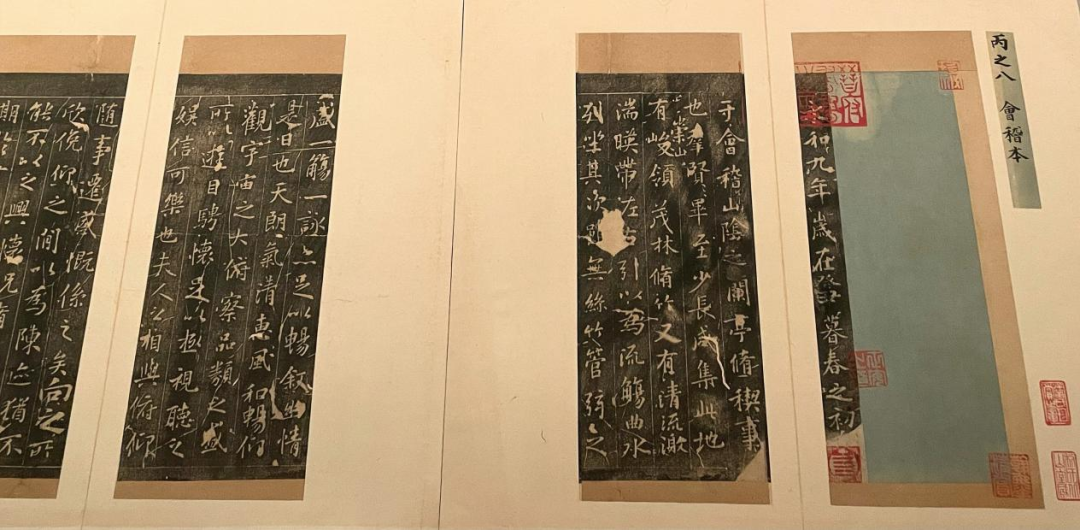 丙之八 會稽本
和九年歲在癸丑暮春之初
于會稽山陰之蘭亭脩稧事
也羣賢畢至少長咸集此地
有崇山峻領茂林脩竹又有清流激
湍暎帶左右引以為流觴曲水
列坐其次雖無絲竹管弦之
盛一觴一詠亦足以暢叙幽情
是日也天朗氣清惠風和暢仰
觀宇宙之大俯察品類之盛
所以遊目騁懷足以極視聽之
娛信可樂也夫人之相與俯仰
隨事遷感慨係之矣向之所
欣俛仰之閒以為陳迹猶不
能不以之興懷況脩
期於